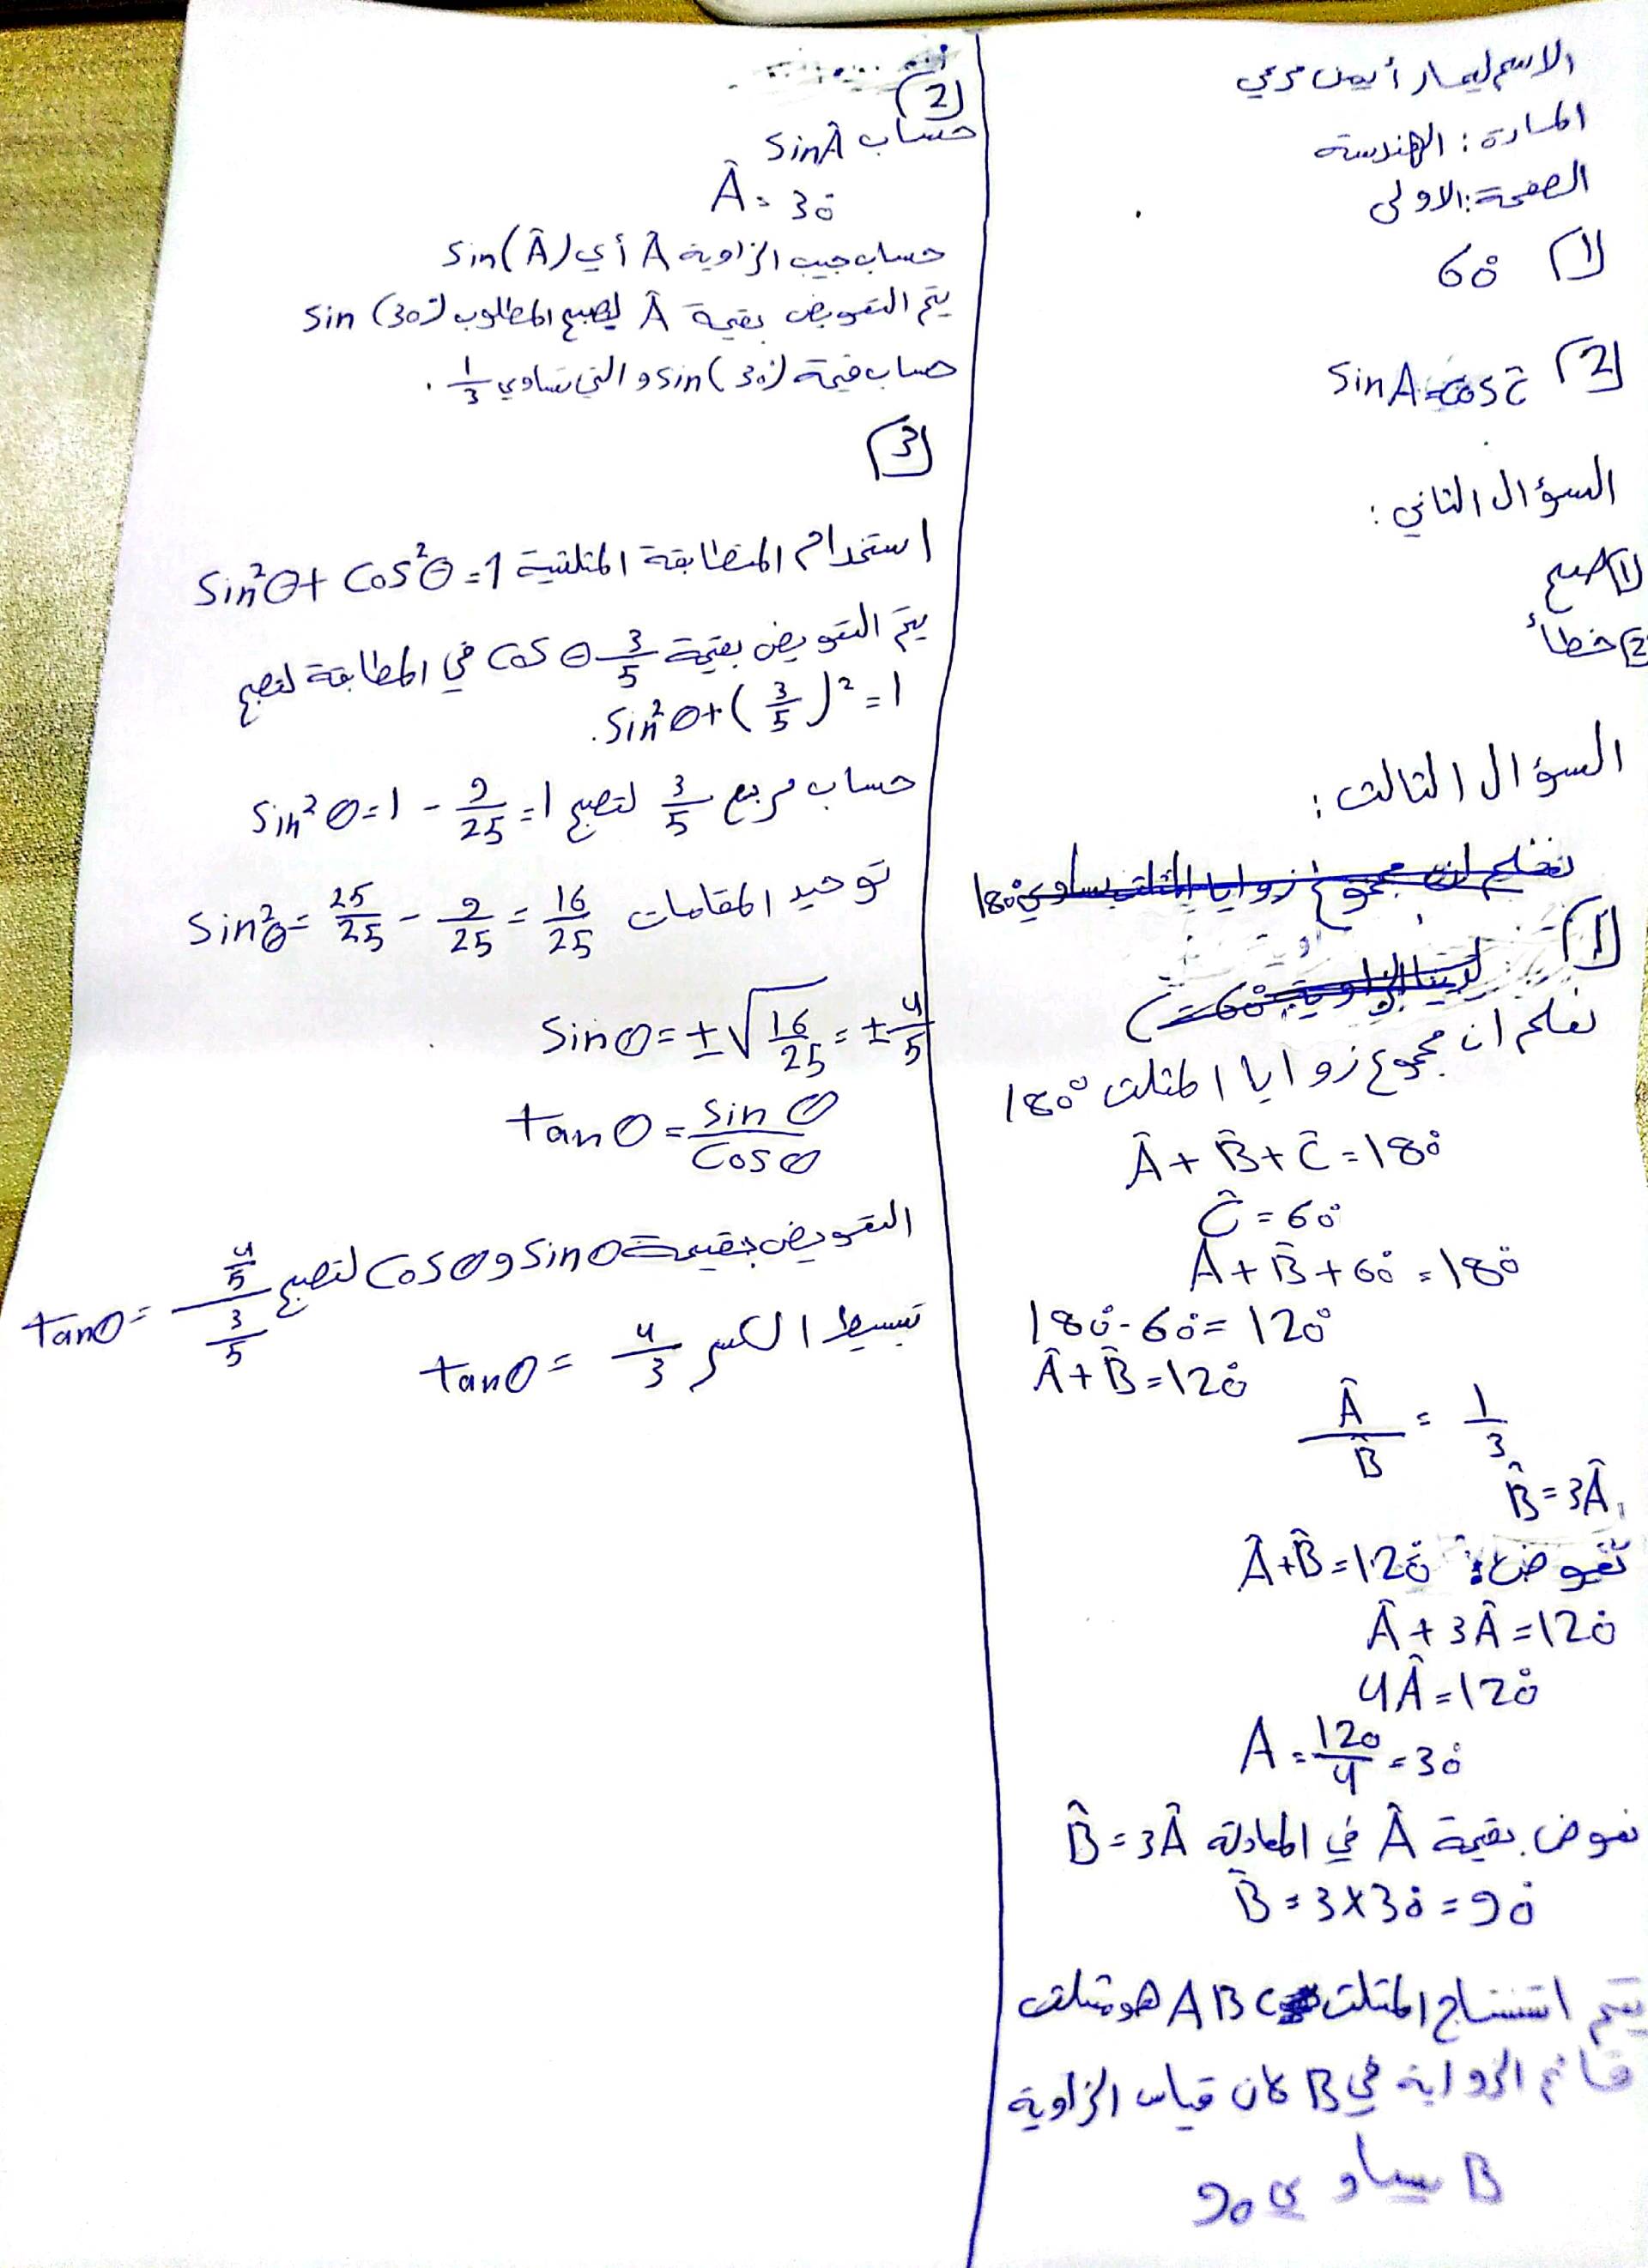 الاسم ليمار أيمن مرعي
المادة : الهندسة
الصفحة: الاولى
1) 60°
2) SinA=cosĈ
السؤال الثاني :
1) صح
2) خطأ
السؤال الثالث :
نعلم ان مجموع زوايا المثلث يساوي 180°
1)
لدينا الزاوية 60°
نعلم ان مجموع زوايا المثلث 180°
Â + B̂ + Ĉ = 180°
Ĉ = 60°
Â + B̂ + 60° = 180°
180° - 60° = 120°
Â + B̂ = 120°
Â/B̂ = 1/3
B̂ = 3Â
نعوض : Â + B̂ = 120°
Â + 3Â = 120°
4Â = 120°
A = 120/4 = 30°
نعوض بقيمة Â في المعادلة B̂ = 3Â
B̂ = 3 x 30° = 90°
يتم استنتاج المثلث ABC هو مثلث
قائم الزواية في B لان قياس الزاوية
B يساوي 90
2)
حساب SinÂ
Â = 30°
حساب جيب الزاوية Â أي Sin(Â)
يتم التعويض بقيمة Â ليصبح المطلوب Sin (30°)
حساب قيمة Sin(30°) والتي تساوي 1/3 .
3)
استخدام المتطابقة المثلثية Sin²θ + Cos²θ = 1
يتم التعويض بقيمة Cos θ 3/5 في المطابقة لتصبح
Sin²θ + (3/5)² = 1 .
حساب مربع 3/5 لتصبح Sin²θ = 1 - 9/25 = 1
توحيد المقامات Sin²θ = 25/25 - 9/25 = 16/25
Sinθ = ±√16/25 = ±4/5
tanθ = Sin θ/Cos θ
التعويض بقيمة Sinθ و Cosθ لتصبح tanθ = 4/5 / 3/5
تبسيط الكسر tanθ = 4/3